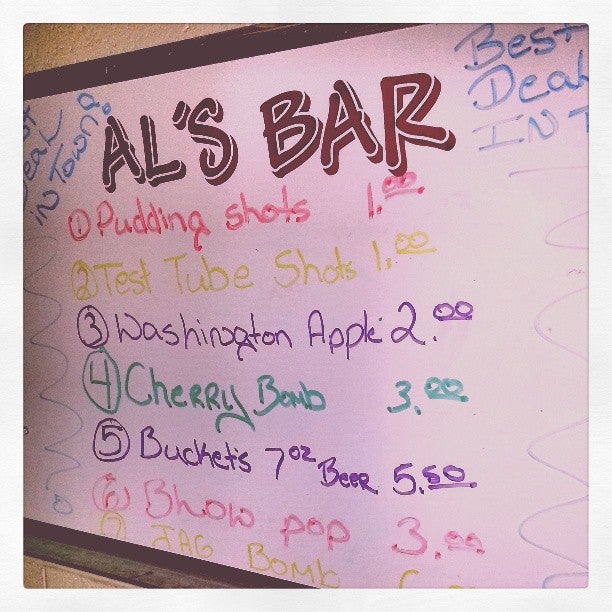 AL'S BAR
Best
Deal
IN T
Deal
iN Town?
① Pudding shots 1.00
② Test Tube Shots 1.00
③ Washington Apple 2.00
④ Cherry Bomb 3.00
⑤ Buckets 7oz Beer 5.50
⑥ Bhow pop 3.00
⑦ JAG Bomb